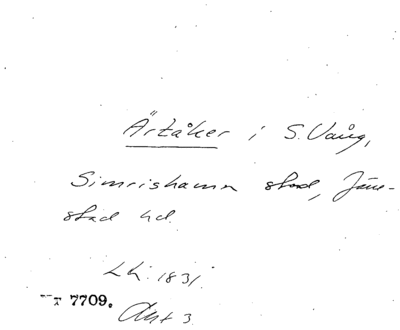 Ärtåker i S. Vång,
Simrishamn stad, Järre-
stad hd.
LK: 1831.
7709.
Akt 3